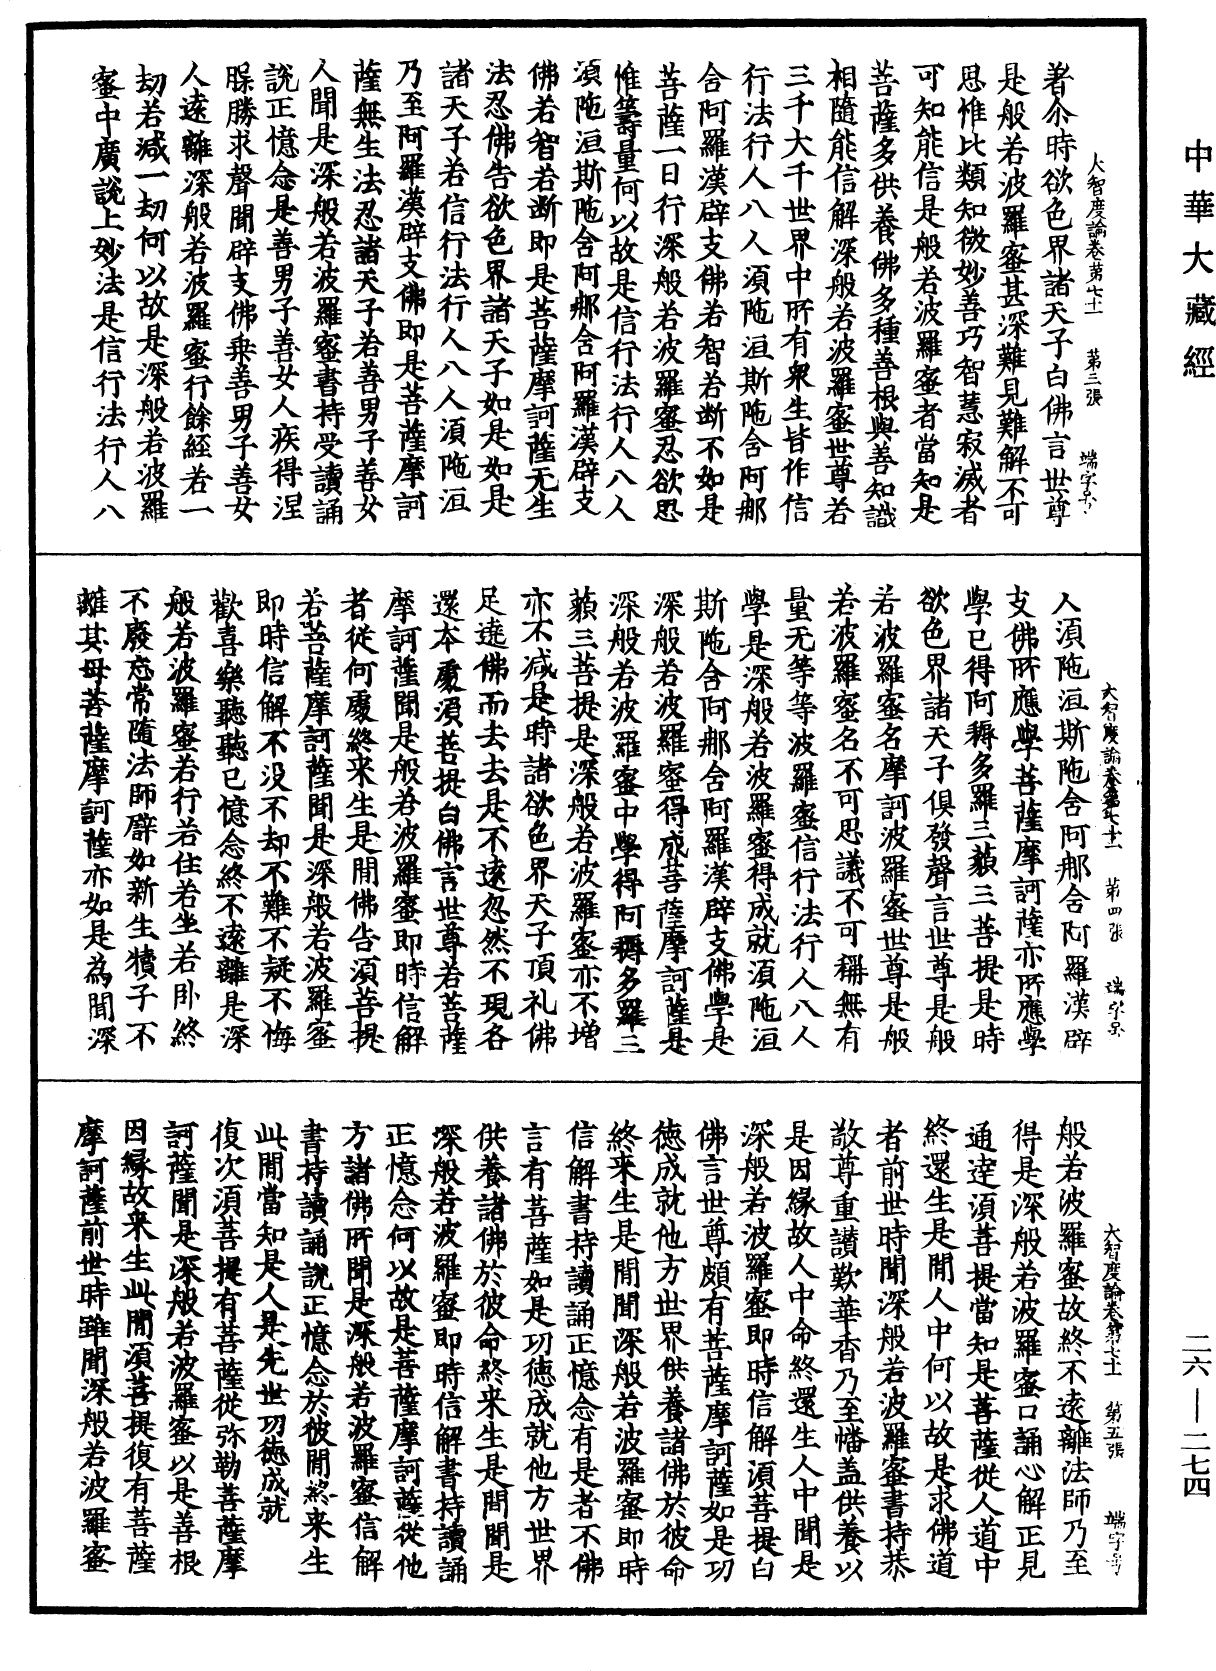 中華大藏經
大智度論卷第七十一　第三張　端字号
著尒時欲色界諸天子白佛言世尊
是般若波羅蜜甚深難見難解不可
思惟比類知微妙善巧智慧寂滅者
可知能信是般若波羅蜜者當知是
菩薩多供養佛多種善根與善知識
相隨能信解深般若波羅蜜世尊若
三千大千世界中所有衆生皆作信
行法行人八人須陁洹斯陁含阿那
含阿羅漢辟支佛若智若断不如是
菩薩一日行深般若波羅蜜忍欲思
惟籌量何以故是信行法行人八人
須陁洹斯陁含阿那含阿羅漢辟支
佛若智若断即是菩薩摩訶薩无生
法忍佛告欲色界諸天子如是如是
諸天子若信行法行人八人須陁洹
乃至阿羅漢辟支佛即是菩薩摩訶
薩無生法忍諸天子若善男子善女
人聞是深般若波羅蜜書持受讀誦
說正憶念是善男子善女人疾得涅
𦖥勝求聲聞辟支佛乗善男子善女
人遠離深般若波羅蜜行餘經若一
劫若减一劫何以故是深般若波羅
蜜中廣說上妙法是信行法行人八
大智度論卷第七十一　第四張　端字号
人須陁洹斯陁含阿那含阿羅漢辟
支佛所應學菩薩摩訶薩亦所應學
學已得阿耨多羅三藐三菩提是時
欲色界諸天子俱發聲言世尊是般
若波羅蜜名摩訶波羅蜜世尊是般
若波羅蜜名不可思議不可稱無有
量无等等波羅蜜信行法行人八人
學是深般若波羅蜜得成就須陁洹
斯陁含阿那含阿羅漢辟支佛學是
深般若波羅蜜得成菩薩摩訶薩是
深般若波羅蜜中學得阿耨多羅三
藐三菩提是深般若波羅蜜亦不增
亦不减是時諸欲色界天子頂礼佛
足遶佛而去去是不遠忽然不現各
還本處須菩提白佛言世尊若菩薩
摩訶薩聞是般若波羅蜜即時信解
者從何處終来生是間佛告須菩提
若菩薩摩訶薩聞是深般若波羅蜜
即時信解不没不却不難不疑不悔
歡喜樂聽聽已憶念終不遠離是深
般若波羅蜜若行若住若坐若卧終
不廢忘常隨法師辟如新生犢子不
離其母菩薩摩訶薩亦如是為聞深
大智度論卷第七十一　第五張　端字号
般若波羅蜜故終不遠離法師乃至
得是深般若波羅蜜口誦心解正見
通達須菩提當知是菩薩從人道中
終還生是間人中何以故是求佛道
者前世時聞深般若波羅蜜書持恭
敬尊重讃歎華香乃至幡盖供養以
是因緣故人中命終還生人中聞是
深般若波羅蜜即時信解須菩提白
佛言世尊頗有菩薩摩訶薩如是功
德成就他方世界供養諸佛於彼命
終来生是間聞深般若波羅蜜即時
信解書持讀誦正憶念有是者不佛
言有菩薩如是功德成就他方世界
供養諸佛於彼命終来生是間聞是
深般若波羅蜜即時信解書持讀誦
正憶念何以故是菩薩摩訶薩從他
方諸佛所聞是深般若波羅蜜信解
書持讀誦說正憶念於彼間終来生
此間當知是人是先世功德成就
復次須菩提有菩薩從弥勒菩薩摩
訶薩聞是深般若波羅蜜以是善根
因緣故来生此間須菩提復有菩薩
摩訶薩前世時雖聞深般若波羅蜜
二六—二七四